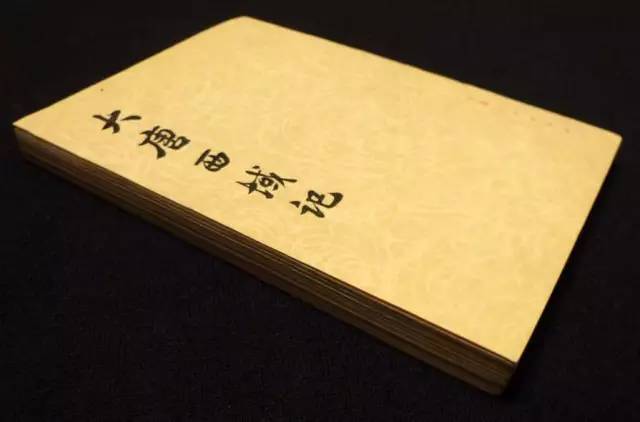 大唐西域记